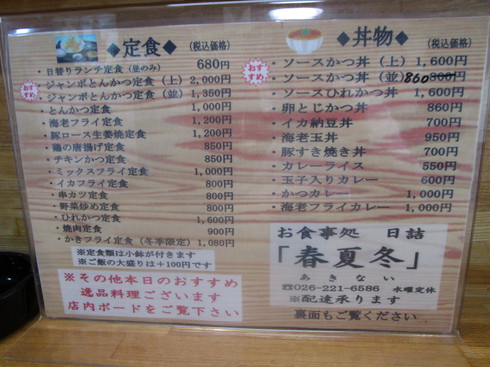 ◆定食◆ (税込価格)
・日替りランチ定食(昼のみ) 680円
おすすめ
・ジャンボとんかつ定食(上) 2,000円
・ジャンボとんかつ定食(並) 1,350円
・とんかつ定食 1,000円
・海老フライ定食 1,200円
・豚ロース生姜焼定食 1,200円
・鶏の唐揚げ定食 850円
・チキンかつ定食 850円
・ミックスフライ定食 1,000円
・イカフライ定食 800円
・串カツ定食 800円
・野菜炒め定食 800円
・ひれかつ定食 1,600円
・焼肉定食 900円
・かきフライ定食(冬季限定) 1,080円
※定食類は小鉢が付きます
※ご飯の大盛りは+100円です
※その他本日のおすすめ
逸品料理ございます
店内ボードをご覧下さい
◆丼物◆ (税込価格)
おすすめ
・ソースかつ丼(上) 1,600円
・ソースかつ丼(並) 860円
・ソースひれかつ丼 1,600円
・卵とじかつ丼 860円
・イカ納豆丼 700円
・海老玉丼 950円
・豚すき焼き丼 700円
・カレーライス 550円
・玉子入りカレー 600円
・かつカレー 1,000円
・海老フライカレー 1,000円
お食事処 日詰
「春夏冬」
あきない
☎026-221-6586 水曜定休
※配達承ります
裏面もご覧ください